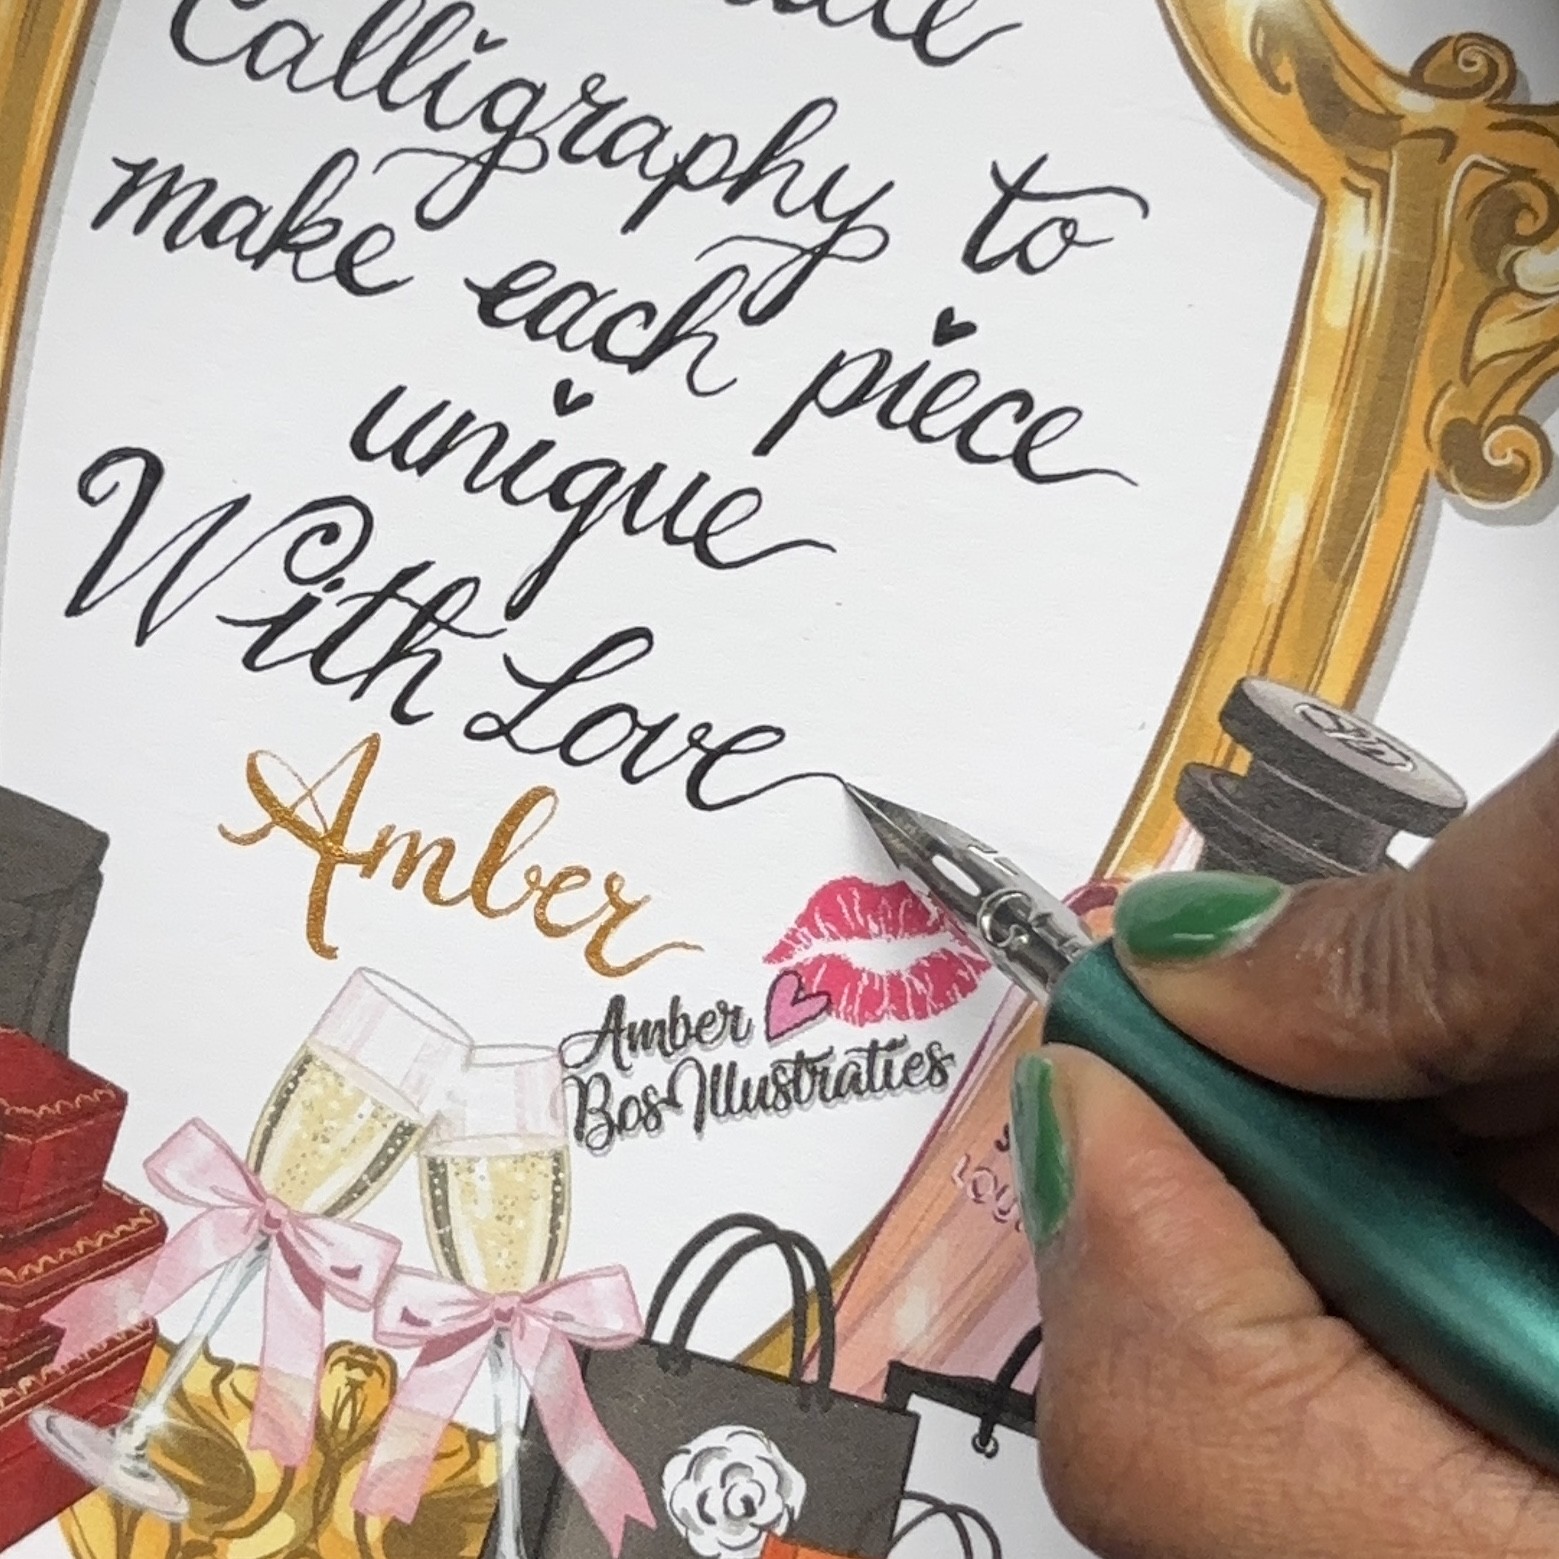 Calligraphy to
make each piece
unique
With Love
Amber
Amber
Bos Illustraties